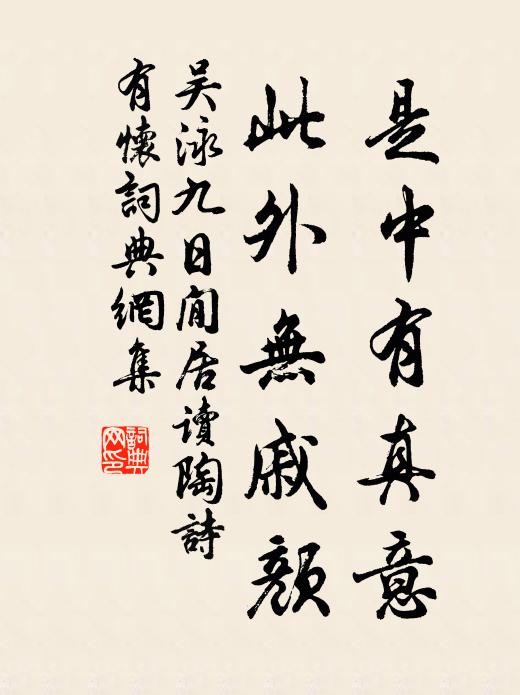 是中有真意
此外無戚顏
吴泳九日閒居读陶詩
有懷詞典網集
詞典网印